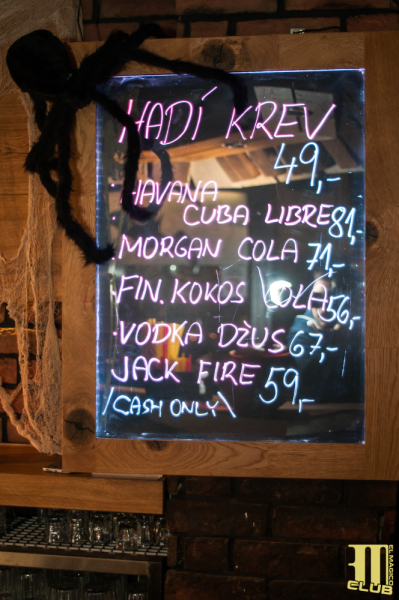 HADÍ KREV
49,-
·HAVANA
CUBA LIBRE 81,-
·MORGAN COLA 71,-
·FIN. KOKOS COLA 56,-
·VODKA DŽUS 67,-
JACK FIRE 59,-
/CASH ONLY\
CLUB